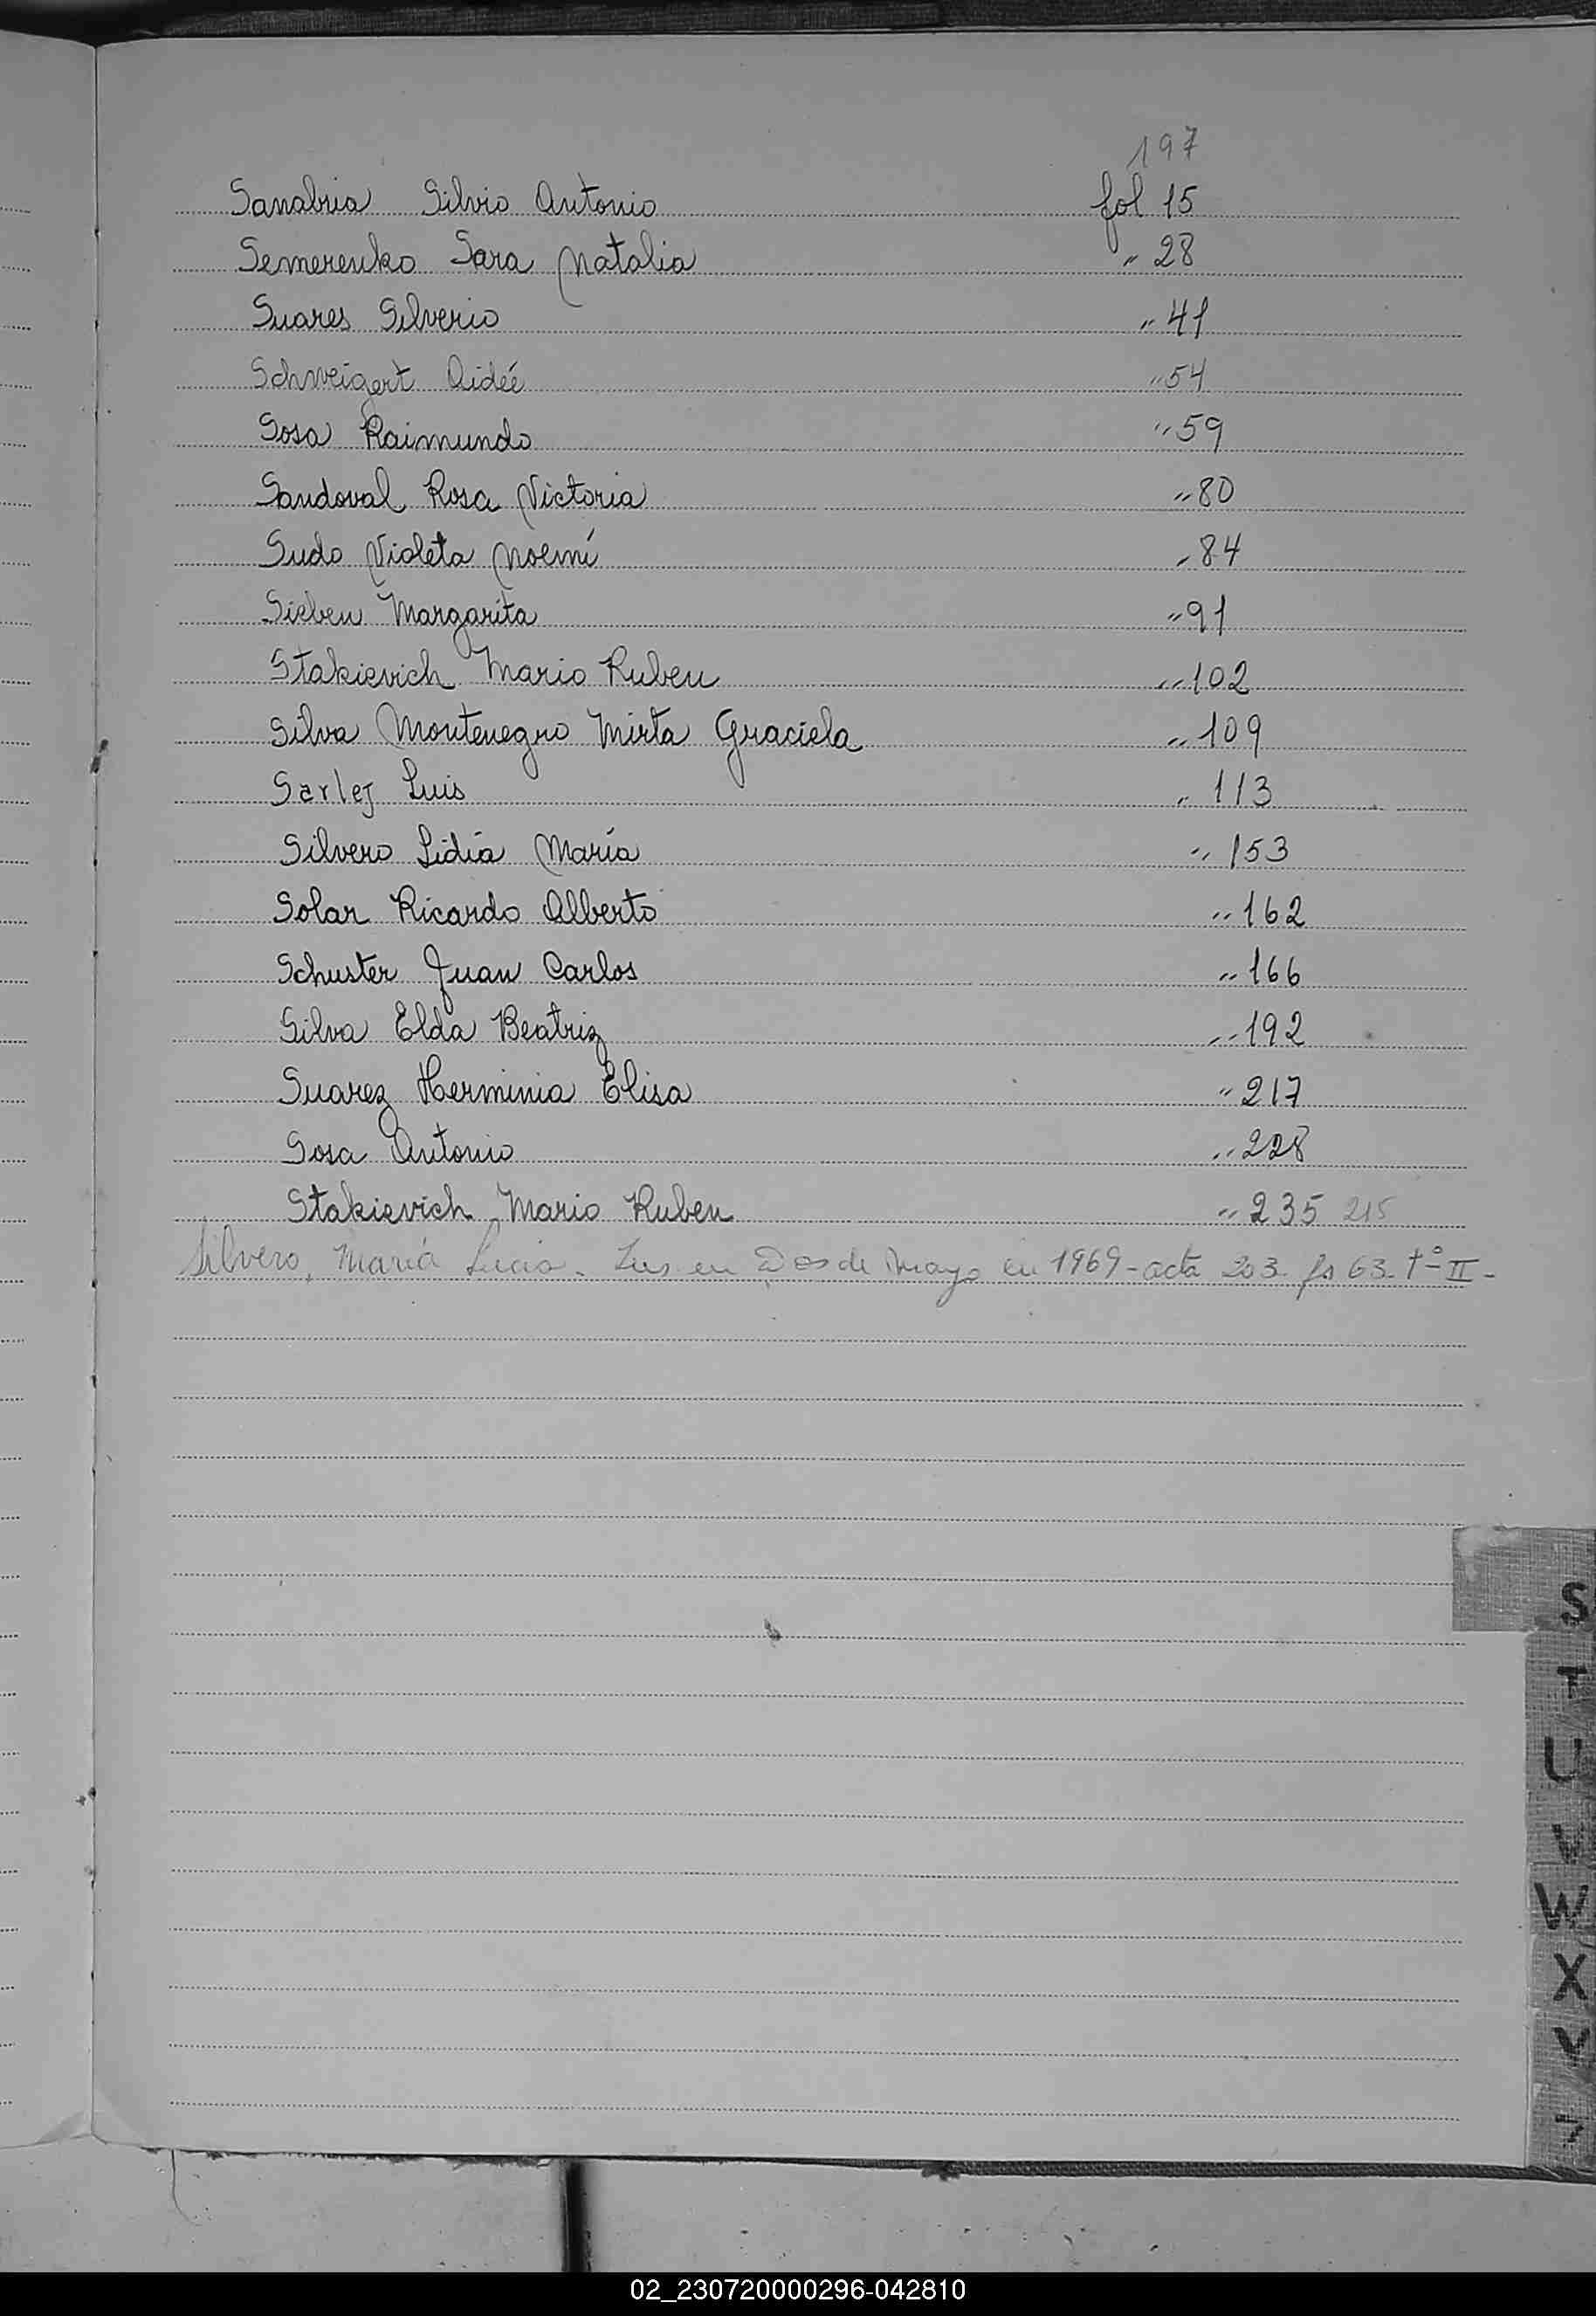 197
Sanabria Silvio Antonio fol 15
Semerenko Sara Natalia " 28
Suares Silverio " 41
Schweigert Aidée " 54
Sosa Raimundo " 59
Sandoval Rosa Victoria " 80
Sudo Violeta Noemí " 84
Sieben Margarita " 91
Stakievich Mario Ruben " 102
Silva Montenegro Mirta Graciela " 109
Sarlej Luis " 113
Silvero Lidia María " 153
Solar Ricardo Alberto " 162
Schuster Juan Carlos " 166
Silva Elda Beatriz " 192
Suarez Herminia Elisa " 217
Sosa Antonio " 228
Stakievich Mario Ruben " 235 215
Silvero, María Lucia. Ins en Dos de Mayo en 1969 - acta 203 fs 63. tº II -
S
T
U
V
W
X
Y
02_230720000296-042810